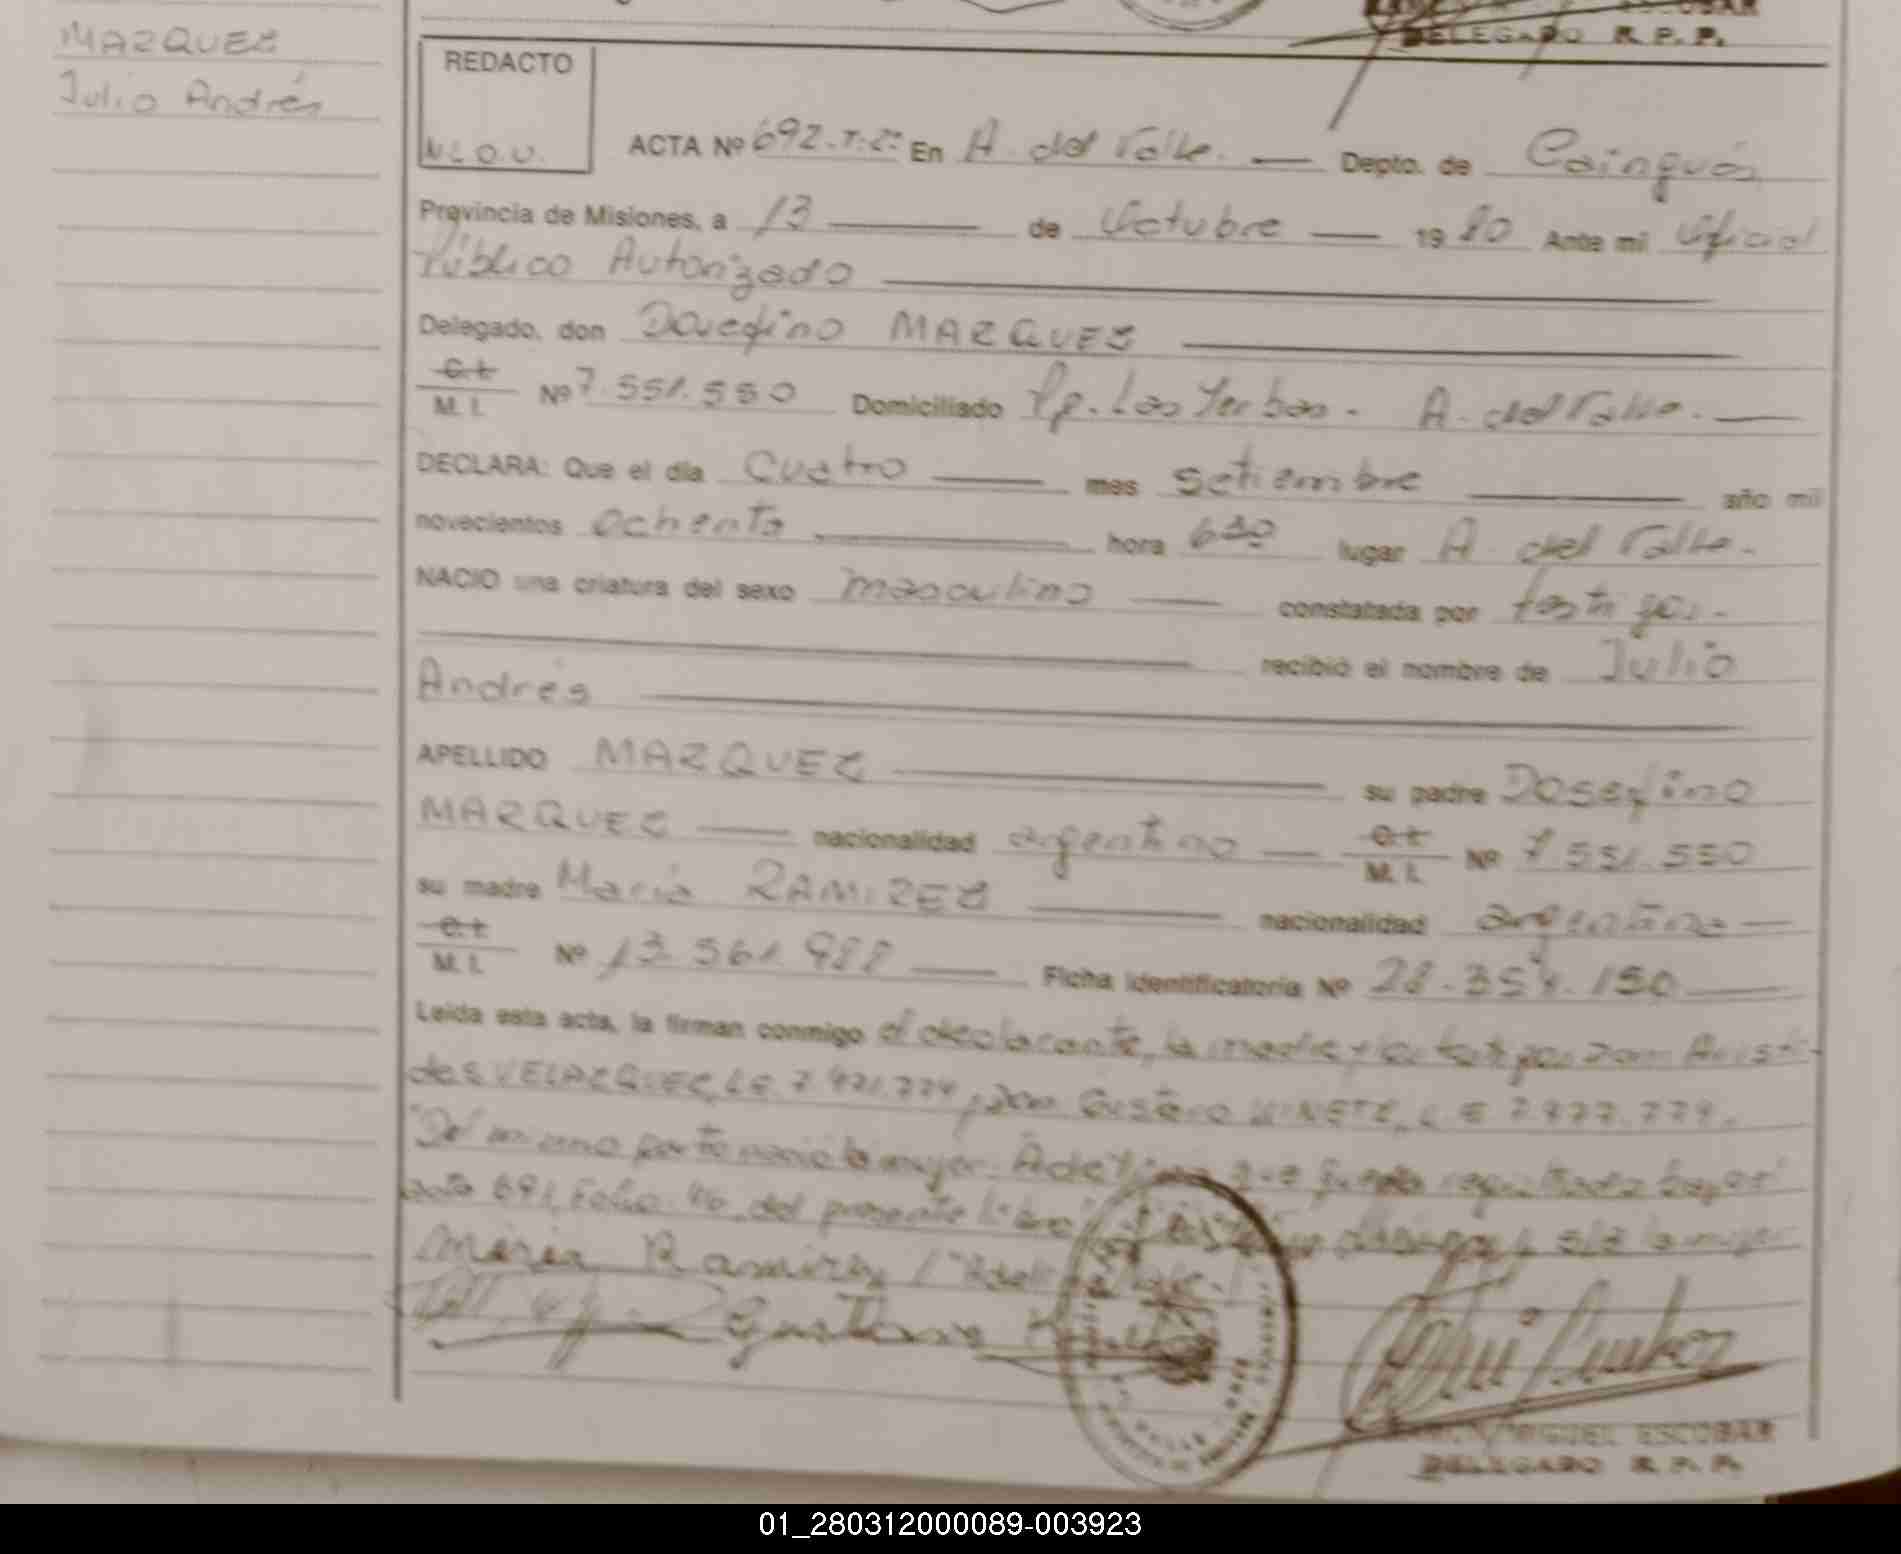 MARQUEZ
Julio Andrés
DELEGADO R. P. P.
REDACTO
ACTA Nº 692.T.2º En A. del Valle. — Depto. de Cainguás
Provincia de Misiones, a 13 — de Octubre — 19 80 Ante mi Oficial
Público Autorizado
Delegado, don Dosefino MARQUEZ
C.I.
M. I. Nº 7.551.550 Domiciliado Pp. Las Yerbas. A. del Valle. —
DECLARA: Que el día Cuatro — mes setiembre — año mil
novecientos ochenta — hora 6 30 lugar A. del Valle.
NACIO una criatura del sexo masculino — constatada por testigos.
recibió el nombre de Julio
Andrés
APELLIDO MARQUEZ — su padre Dosefino
MARQUEZ — nacionalidad argentino — C.I.
M. I. Nº 7.551.550
su madre María RAMIREZ — nacionalidad argentina —
C.I.
M. I. Nº 13.561.988 — Ficha identificatoria Nº 28.354.150
Leída esta acta, la firman conmigo el declarante, la madre y los testigos Don Aristi-
des VELAZQUEZ, LE 7.471.774, Don Gustavo LE 7.477.779.
Del mismo parto nació la mujer. que
acta 691, Folio 46 del presente libro la mujer
Maria Ramirez
Gustavo
MIGUEL ESCOBAR
DELEGADO R. P. P.
01_280312000089-003923